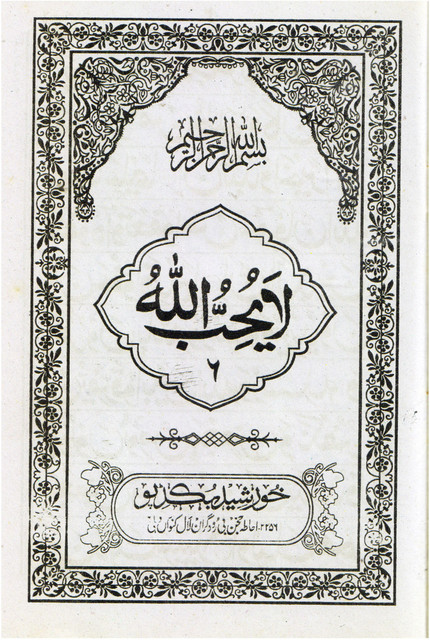 بسم الله الرحمن الرحيم
لَا يُحِبُّ اللهُ
۶
خورشید بکڈپو
۲۲۵۶- احاطہ حجن بی رودگران لال کنواں